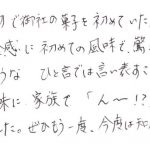 で御社の菓子を初めていた
感に初めての風味で、驚
うな ひと言では言い表すこ
味に、家族で「ん〜!?
た。ぜひもう一度、今度は知